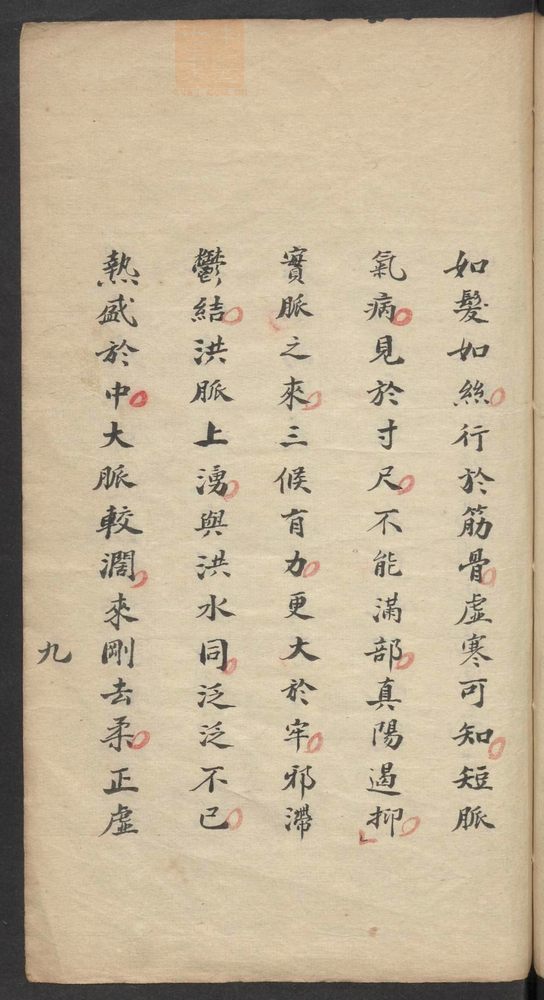 如髮如絲行於筋骨虛寒可知短脈
氣病見於寸尺不能滿部真陽遏抑
實脈之來三候有力更大於牢邪滯
鬱結洪脈上湧與洪水同泛泛不已
熱盛於中大脈較濶來剛去柔正虛
九